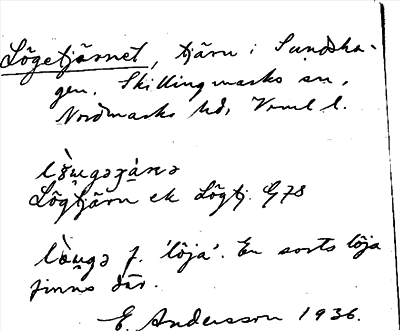 Lögetjärnet, tjärn i Sundsha-
gen, Skillingmarks sn,
Nordmarks hd, Vrml l.
Lögtjärn ek Lögtj. G78
f. 'löja'. En sorts löja
finns där.
E. Andersson 1936.